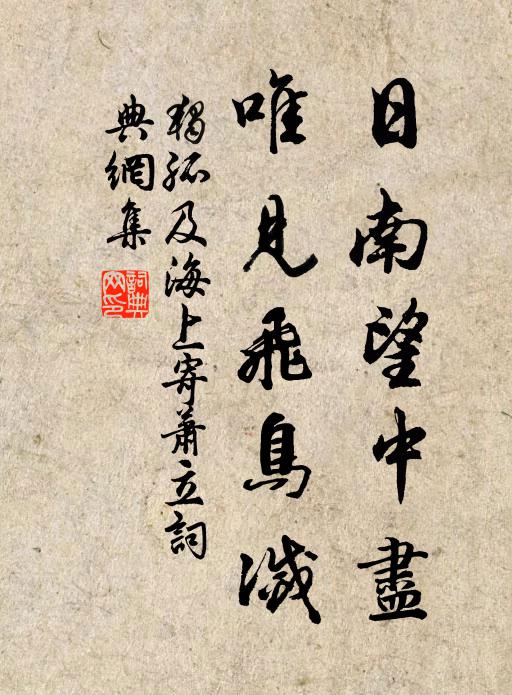 日南望中盡
唯見飛鳥滅
獨孤及海上寄蕭立詞
典網集
詞典網印